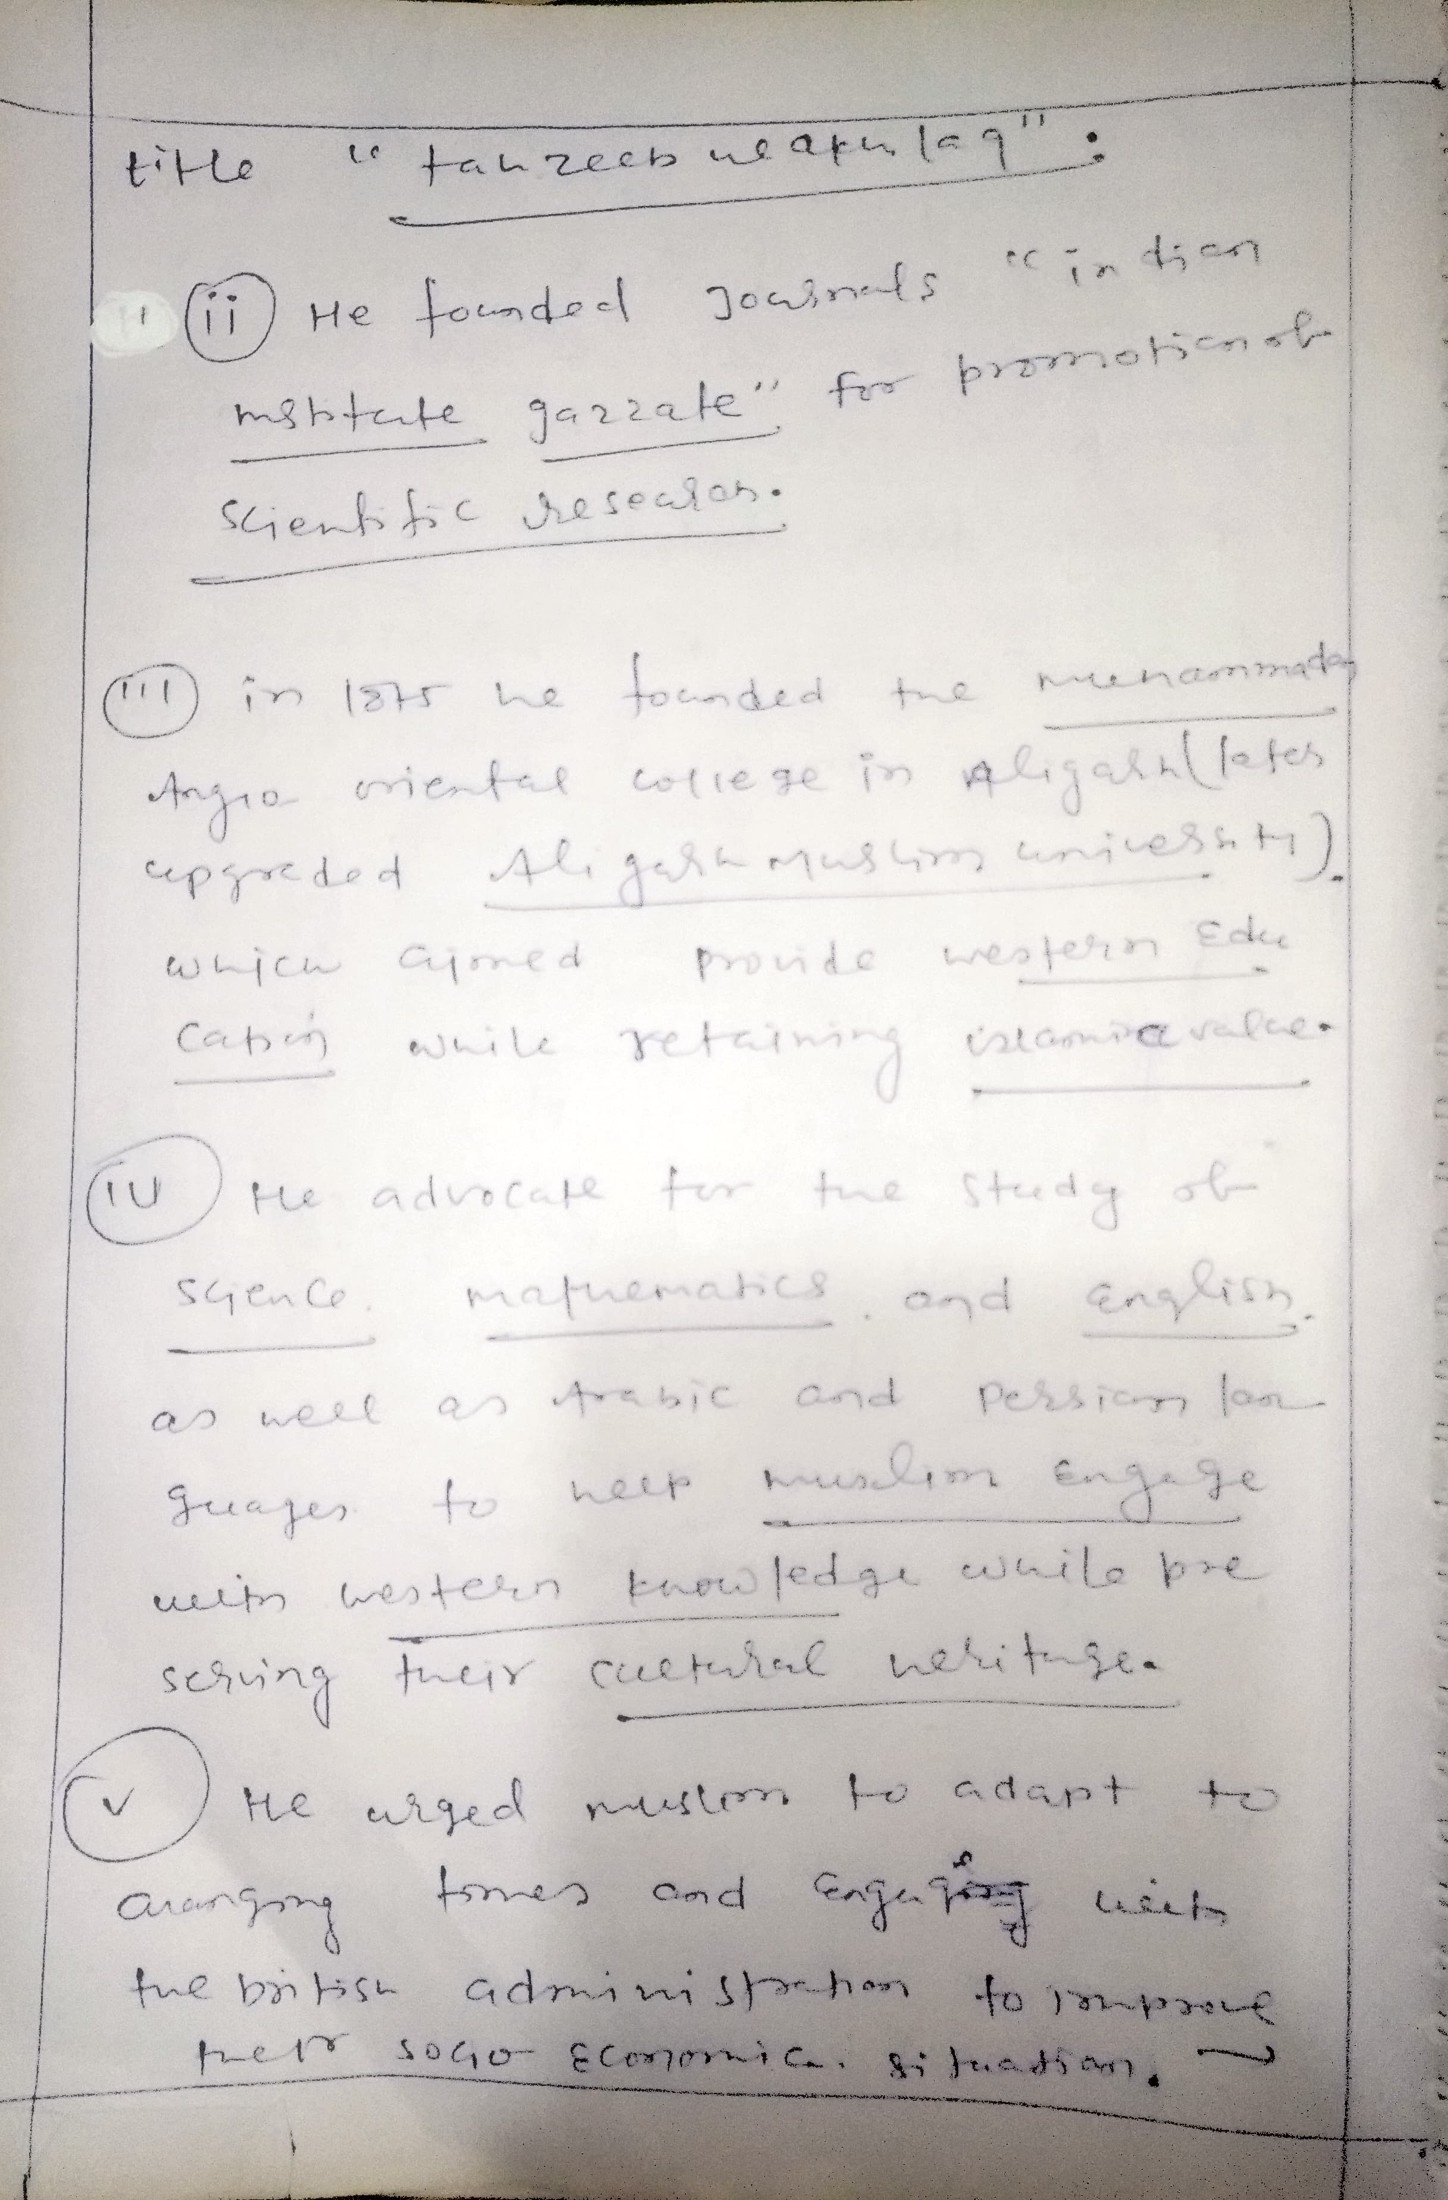 title " tahzeeb ul akhlaq" :
(ii) He founded Journals " indian
institute gazzate" for promotion of
scientific research.
(iii) in 1875 he founded the muhammadan
Anglo oriental college in Aligarh (later
upgraded Aligarh Muslim university).
which aimed provide western Edu
cation while retaining islamic value.
(iv) He advocate for the study of
science, mathematics, and English,
as well as Arabic and Persian lan
guages to help muslim engage
with western knowledge while pre
serving their cultural heritage.
(v) He urged muslim to adapt to
changing times and engaging with
the british administration to improve
their socio economic. situation. →